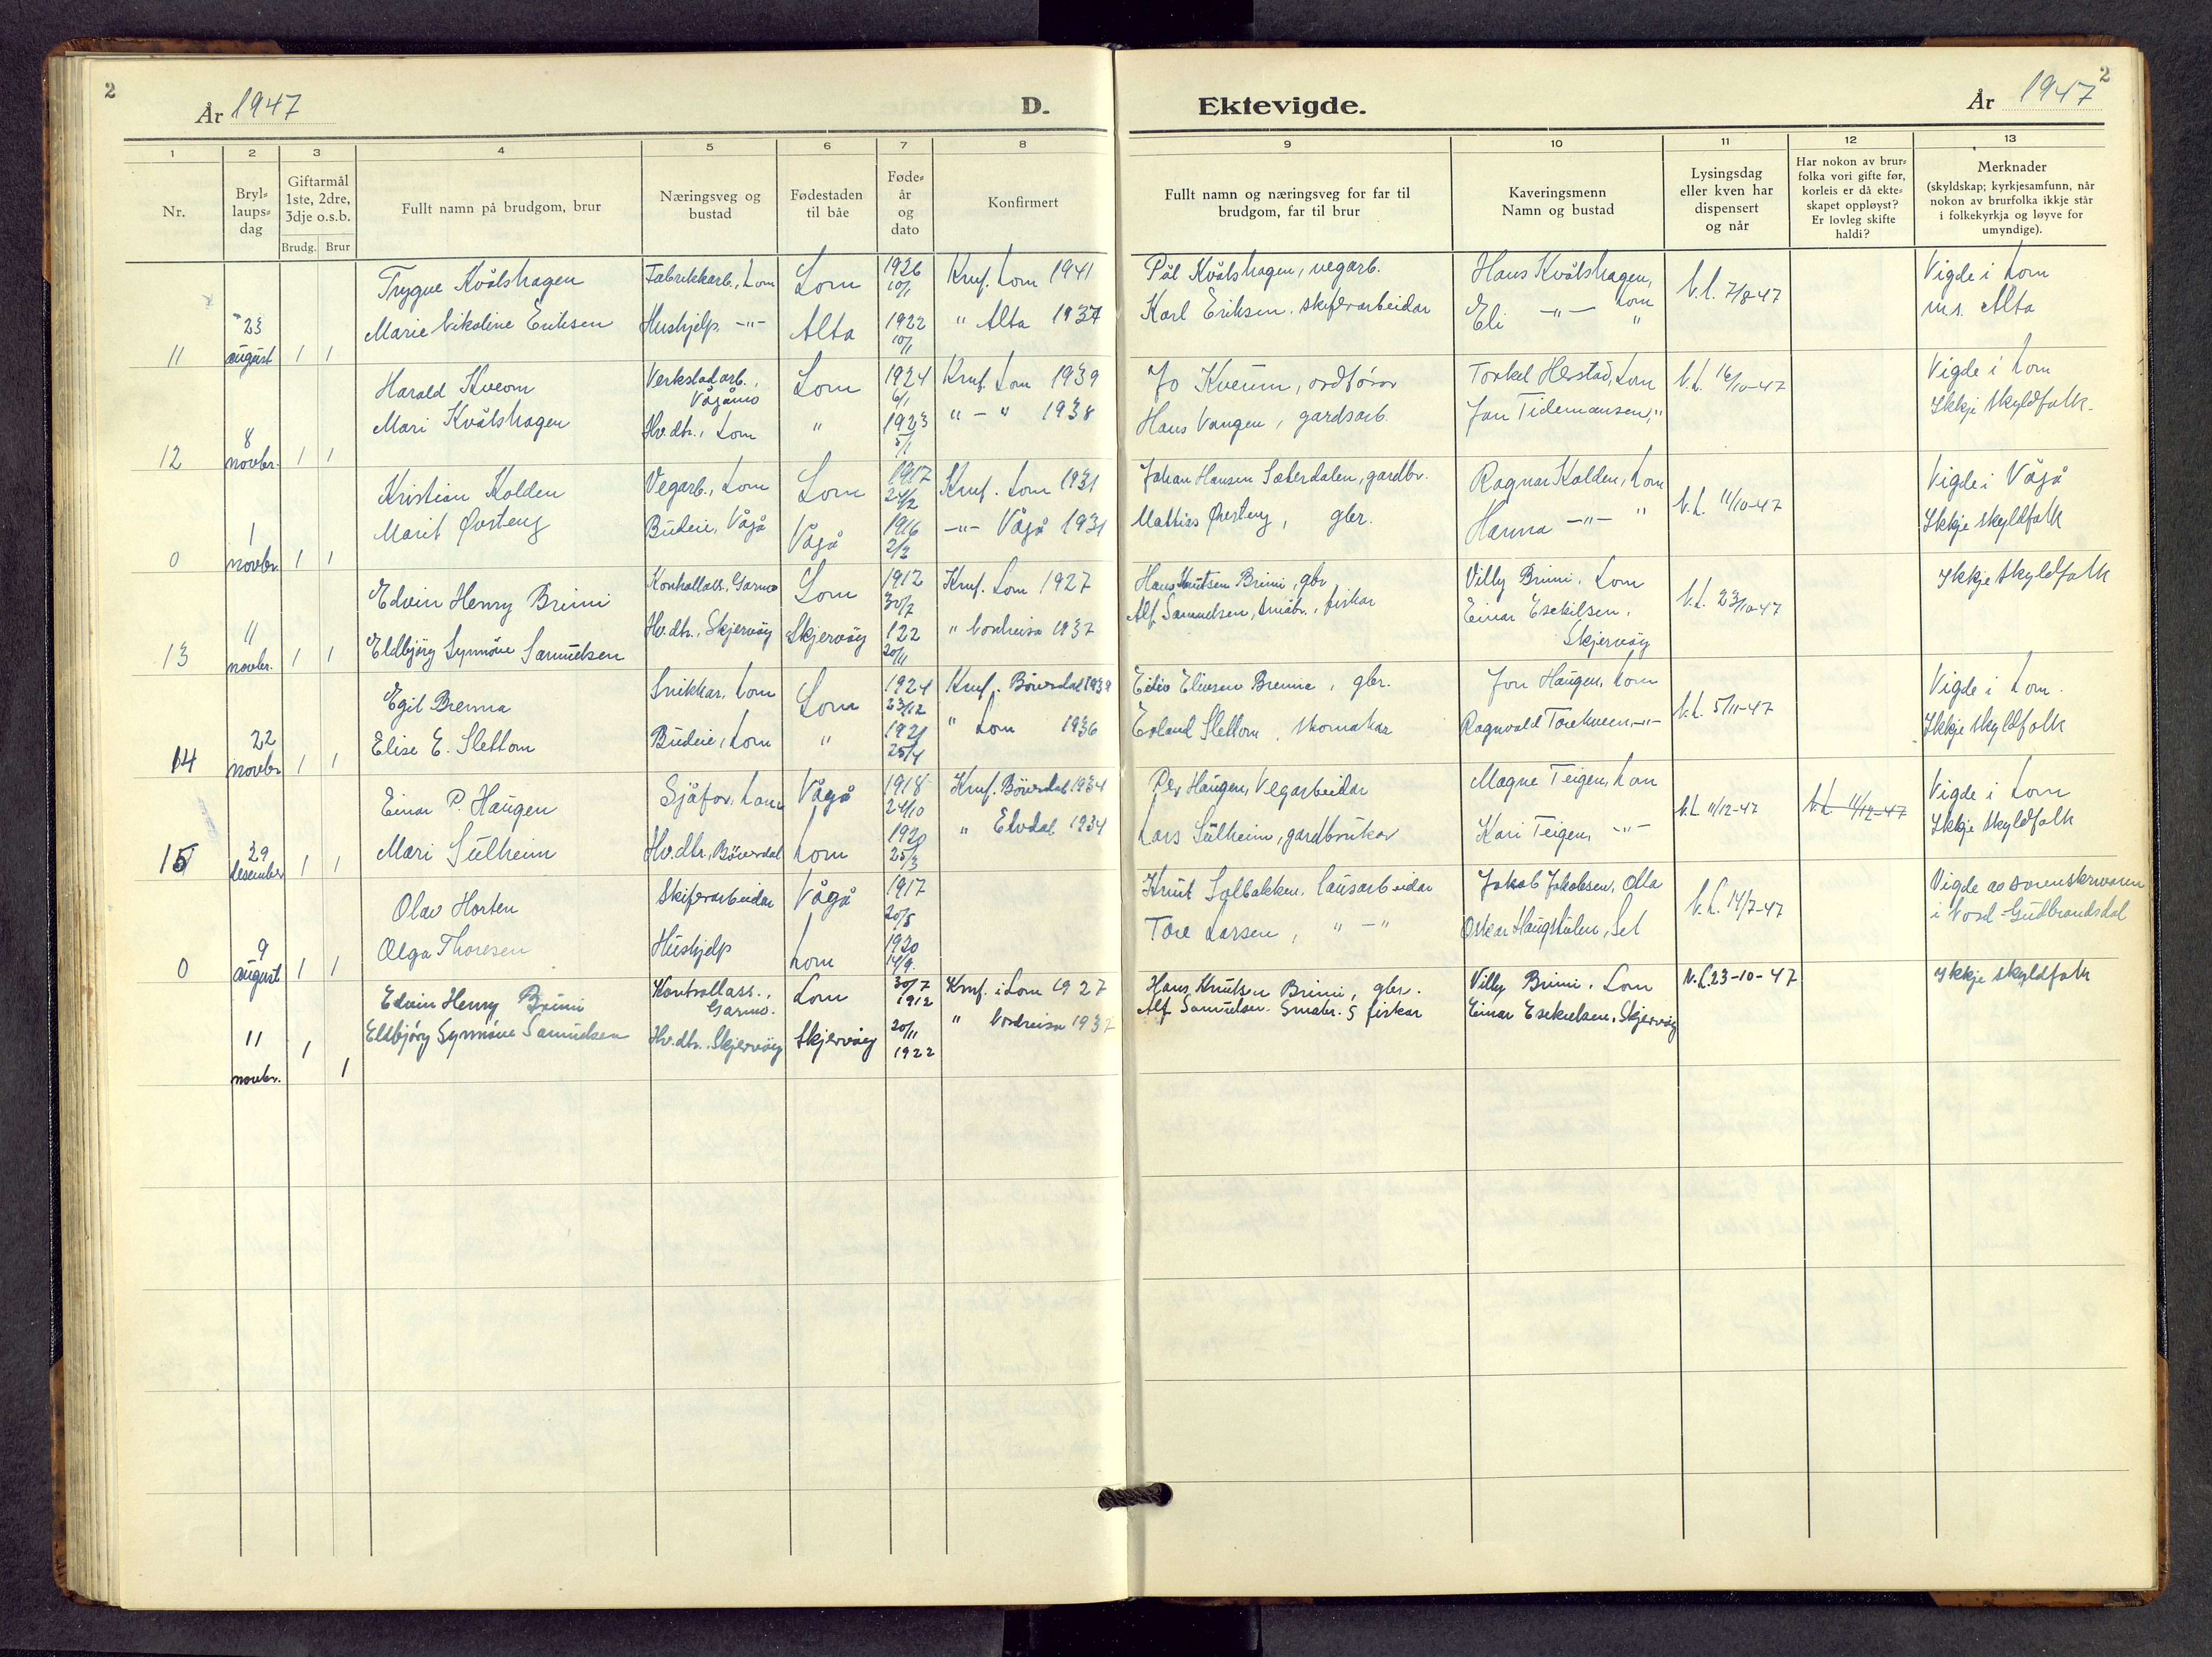 2
År 1947
D.
Ektevigde.
År 1947
2
1 2 3 4 5 6 7 8 9 10 11 12 13
Nr.
Bryl=
laups=
dag
Giftarmål
1ste, 2dre,
3dje o.s.b.
Brudg. Brur
Fullt namn på brudgom, brur
Næringsveg og
bustad
Fødestaden
til båe
Føde=
år
og
dato
Konfirmert
Fullt namn og næringsveg for far til
brudgom, far til brur
Kaveringsmenn
Namn og bustad
Lysingsdag
eller kven har
dispensert
og når
Har nokon av brur=
folka vori gifte før,
korleis er då ekte=
skapet oppløyst?
Er lovleg skifte
haldi?
Merknader
(skyldskap; kyrkjesamfunn, når
nokon av brurfolka ikkje står
i folkekyrkja og løyve for
umyndige).
Trygve Kvålshagen Fabrikkarb., Lom Lom 1926 10/1 Knf. Lom 1941 Pål Kvålshagen, vegarb. Hans Kvålshagen, Lom N.L. 7/8-47 Vigde i Lom
11 23 august 1 1 Marie Nikoline Eriksen Hushjelp -"- Alta 1922 10/11 " Alta 1937 Karl Eriksen, skiferarbeidar Eli -"- " m.s. Alta
Harald Kveom Verkstadarb., Vågåmo Lom 1924 6/1 Knf. Lom 1939 Jo Kveum, ordførar Torkel Herstad, Lom N.L. 16/10-47 Vigde i Lom
12 8 novbr. 1 1 Mari Kvålshagen Hv.dtr., Lom " 1923 5/1 " - " 1938 Hans Vangen, gardsarb. Jan Tidemansen, " Ikkje skyldfolk.
Kristian Kolden Vegarb., Lom Lom 1917 24/2 Knf. Lom 1931 Johan Hansen Sæterdalen, gardbr. Ragnar Kolden, Lom N.L. 11/10-47 Vigde i Vågå
0 1 novbr. 1 1 Marit Øvsteng Budeie, Vågå Vågå 1916 2/3 -"- Vågå 1931 Mathias Øvsteng, gbr. Hanna -"- " Ikkje skyldfolk
Edvin Henry Brimi Kontrollass., Garmo Lom 1912 30/7 Knf. Lom 1927 Hans Knutsen Brimi, gbr. Villy Brimi, Lom N.L. 23/10-47 Ikkje skyldfolk
13 11 novbr. 1 1 Eldbjörg Synnöve Samuelsen Hv.dtr., Skjervöy Skjervöy 122 20/11 " Nordreisa 1937 Alf Samuelsen, småbr., fiskar Einar Esekilsen, Skjervöy
Egil Brenna Snikkar, Lom Lom 1924 23/12 Knf. Böverdal 1939 Eiliv Elivsen Brenna, gbr. Jon Haugen, Lom N.L. 5/11-47 Vigde i Lom.
14 22 novbr 1 1 Elise E. Slettom Budeie, Lom " 1921 25/4 " Lom 1936 Erland Slettom, skomakar Ragnvald Torekveen, -"- Ikkje skyldfolk
Einar P. Haugen Sjåfør, Lom Vågå 1918 24/10 Knf. Böverdal 1934 Per Haugen, Vegarbeidar Magne Teigen, Lom N.L. 11/12-47 N.L. 11/12-47 Vigde i Lom
15 29 desember 1 1 Mari Sulheim Hv.dtr., Böverdal Lom 1920 25/3 " Elvdal 1934 Lars Sulheim, gardbrukar Kari Teigen, -"- Ikkje skyldfolk
Olav Horten Skiferarbeidar Vågå 1917 20/8 Knut Solbakken, lausarbeidar Jakob Jakobsen, Otta N.L. 14/7-47 Vigde av sorenskrivaren
0 9 august 1 1 Olga Thoresen Hushjelp Lom 1920 14/9. Tore Larsen, " - " Oskar Haugstulen, Sel i Nord-Gudbrandsdal
Edvin Henry Brimi Kontrollass., Garmo. Lom 30/7 1912 Knf. i Lom 1927 Hans Knutsen Brimi, gbr. Villy Brimi, Lom N.L. 23-10-47 Ikkje skyldfolk
11 novbr. 1 1 Eldbjörg Synnöve Samuelsen Hv.dtr., Skjervöy Skjervöy 20/11 1922 " Nordreisa 1937 Alf Samuelsen. Småbr. & fiskar Einar Esekielsen, Skjervöy